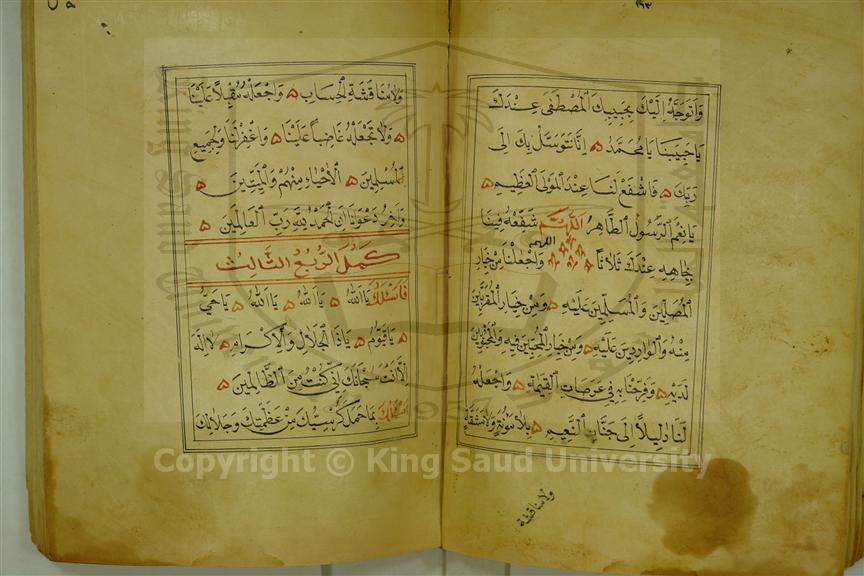 ١٩٣
وَاَتَوَجَّهُ اِلَيْكَ بِحَبِيبِكَ الْمُصْطَفَى عِنْدَكَ
يَا حَبِيبَنَا يَا مُحَمَّدُ ۵ اِنَّا نَتَوَسَّلُ بِكَ اِلَى
رَبِّكَ ۵ فَاشْفَعْ لَنَا عِنْدَ الْمَوْلَى الْعَظِيمِ ۵
يَا نِعْمَ الرَّسُولُ الطَّاهِرُ اَللّٰهُمَّ شَفِّعْهُ فِينَا
بِجَاهِهِ عِنْدَكَ ثَلَاثًا اللهم وَاجْعَلْنَا مِنْ خِيَارِ
الْمُصَلِّينَ وَالْمُسَلِّمِينَ عَلَيْهِ ۵ وَمِنْ خِيَارِ الْمُقَرَّبِينَ
مِنْهُ وَالْوَارِدِينَ عَلَيْهِ ۵ وَمِنْ خِيَارِ الْمُحِبِّينَ فِيهِ وَالْمَحْبُوبِينَ
لَدَيْهِ ۵ وَفَرِّحْنَا بِهِ فِي عَرَصَاتِ الْقِيٰمَةِ ۵ وَاجْعَلْهُ
لَنَا دَلِيلًا اِلَى جَنَّةِ النَّعِيمِ ۵ بِلَا مَؤُنَةٍ وَلَا مَشَقَّةٍ
ولا مناقشة
وَلَا مُنَاقَشَةِ الْحِسَابِ ۵ وَاجْعَلْهُ مُقْبِلًا عَلَيْنَا
۵ وَلَا تَجْعَلْهُ غَاضِبًا عَلَيْنَا ۵ وَاغْفِرْ لَنَا وَلِجَمِيعِ
الْمُسْلِمِينَ ۵ اَلْاَحْيَاءِ مِنْهُمْ وَالْمَيِّتِينَ ۵
وَاٰخِرُ دَعْوَانَا اَنِ الْحَمْدُ لِلّٰهِ رَبِّ الْعَالَمِينَ ۵
كَمُلَ الرُّبُعُ الثَّالِثُ
فَاَسْئَلُكَ يَا اَللّٰهُ ۵ يَا اَللّٰهُ ۵ يَا اَللّٰهُ ۵ يَا حَيُّ
۵ يَا قَيُّومُ ۵ يَا ذَا الْجَلَالِ وَالْاِكْرَامِ ۵ لَا اِلٰهَ
اِلَّا اَنْتَ سُبْحَانَكَ اِنِّي كُنْتُ مِنَ الظَّالِمِينَ ۵
اَسْئَلُكَ بِمَا حَمَلَ كُرْسِيُّكَ مِنْ عَظَمَتِكَ وَجَلَالِكَ
Copyright © King Saud University
1957